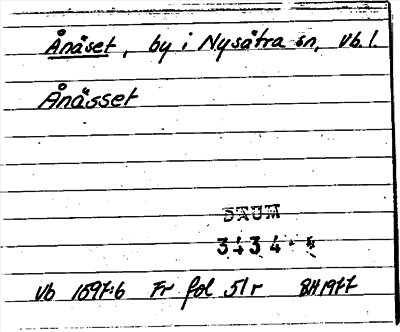 Ånäset, by i Nysätra sn, Vb. l.
Ånässet
DAUM
3434
Vb 1597:6 Fr fol 51r BH 1977